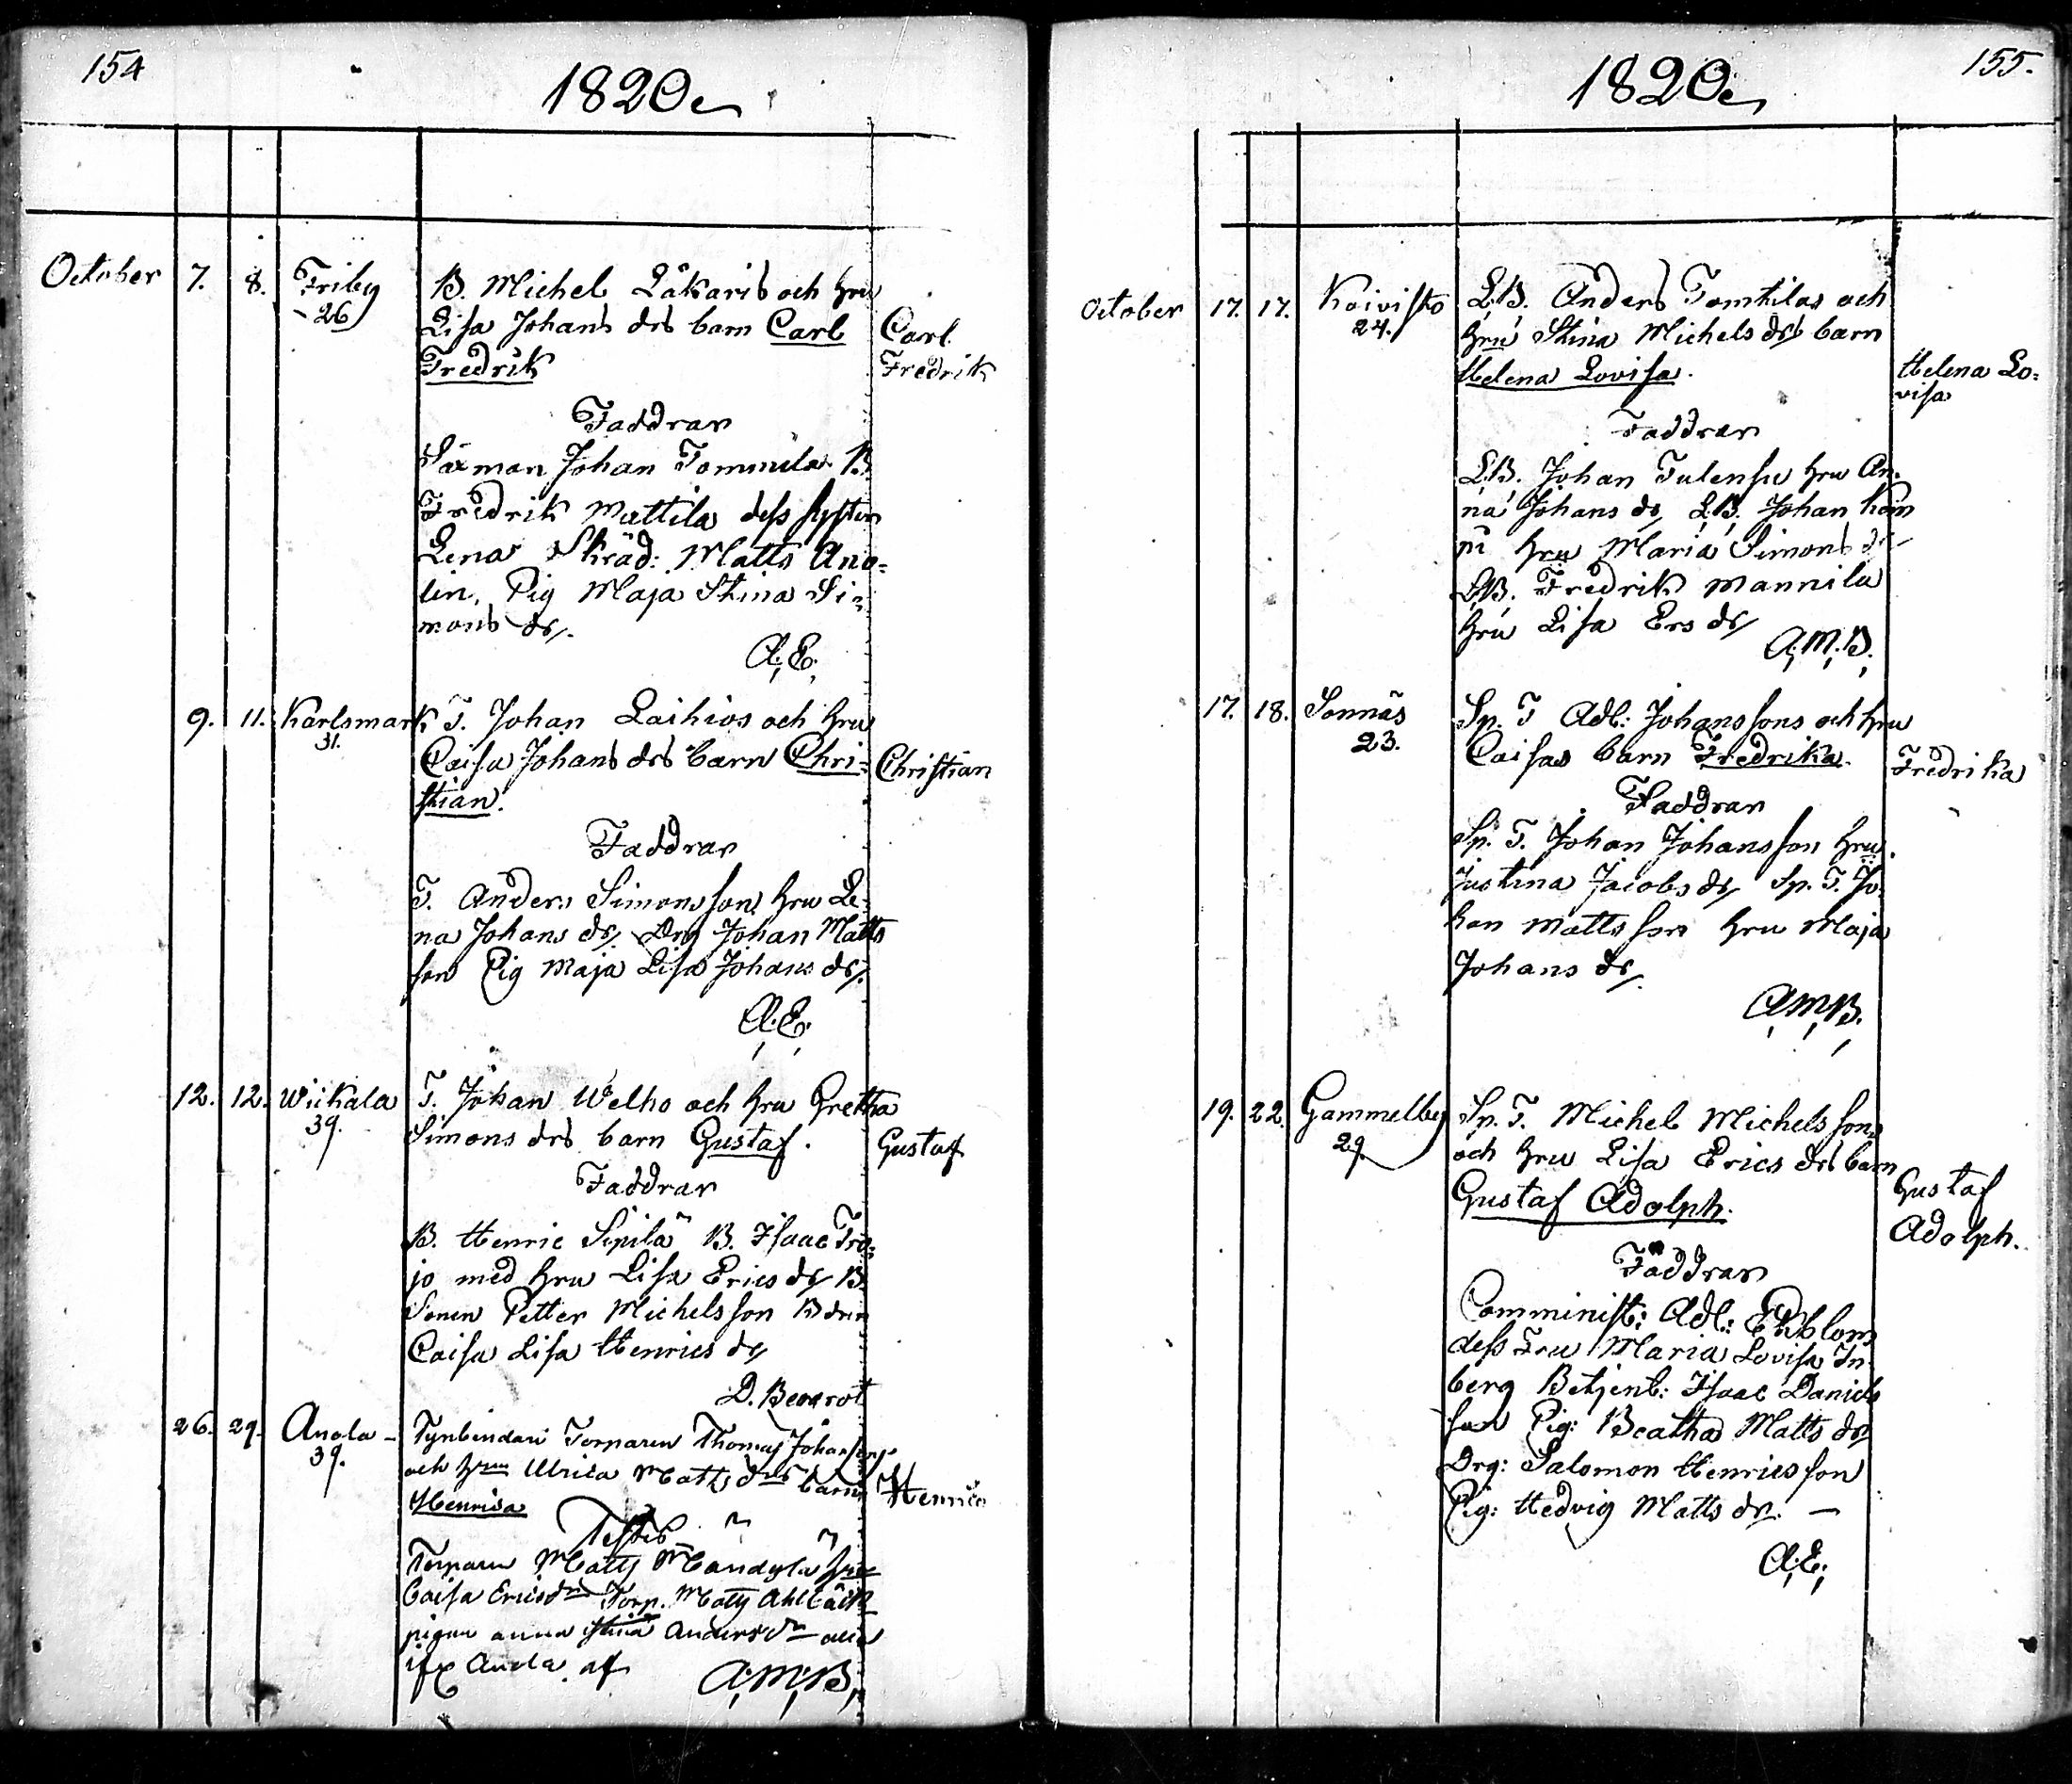 154
1820
October 7. 8. Friby B. Michel Låkaris och hru
26 Lisa Johans drs barn Carl Carl
Fredrik Fredrik
Faddrar
Sexman Johan Tommila B.
Fredrik Mattila dess syster
Lena Skräd: Matts Ano=
lin, Pig Maja Stina Si=
mons dr.
A.E.
9. 11. Karlsmark T. Johan Laihios och hru
31. Caisa Johans drs barn Chri= Christian
stian.
Faddrar
T. Anders Simonsson hru Le=
na Johans dr, Drg Johan Matts
son Pig Maja Lisa Johans dr.
A.E.
12. 12. Wiikala T. Johan Welho och hru Gretha
39. Simons drs barn Gustaf. Gustaf
Faddrar
B. Henric Sipilä B. Isaac Tro=
jo med hru Lisa Erics dr B.
Sonen Petter Michelsson B drn
Caisa Lisa Henrics dr
26. 29. Anola Torparen Thomas Johansson
39. och hru Ulrica Matts drs barn
Henrica Henrica
Testes
Torparen Matts hru
Caisa Erics dr Torp. Matts Ahlbäck
pigan Anna Stina Anders dr
Anola af A.M.B.
155.
1820
October 17. 17. Koivisto L.B. Anders Tomtilas och
24. hru Stina Michels drs barn
Helena Lovisa. Helena Lo=
visa
Faddrar
L.B. Johan Tulensu hru An=
na Johans dr, L.B. Johan Käm
pi hru Maria Simons dr
L.B. Fredrik Mannila
hru Lisa Ers dr
A.M.B.
17. 18. Sonnäs Sp. T Adl: Johanssons och hru
23. Caisas barn Fredrika. Fredrika
Faddrar
Sp. T. Johan Johansson hru
Justina Jacobs dr, Sp. T. Jo=
han Mattsson hru Maja
Johans dr.
A.M.B.
19. 22. Gammelby Sp. T. Michel Michelssons
29. och hru Lisa Erics drs barn
Gustaf Adolph. Gustaf
Adolph.
Faddrar
Comminist: Adl: Ekblom
dess Fru Maria Lovisa In=
berg Betjent: Isaac Daniels
son Pig: Beatha Matts dr
Drg: Salomon Henricsson
Pig: Hedvig Matts dr. —
A.E.